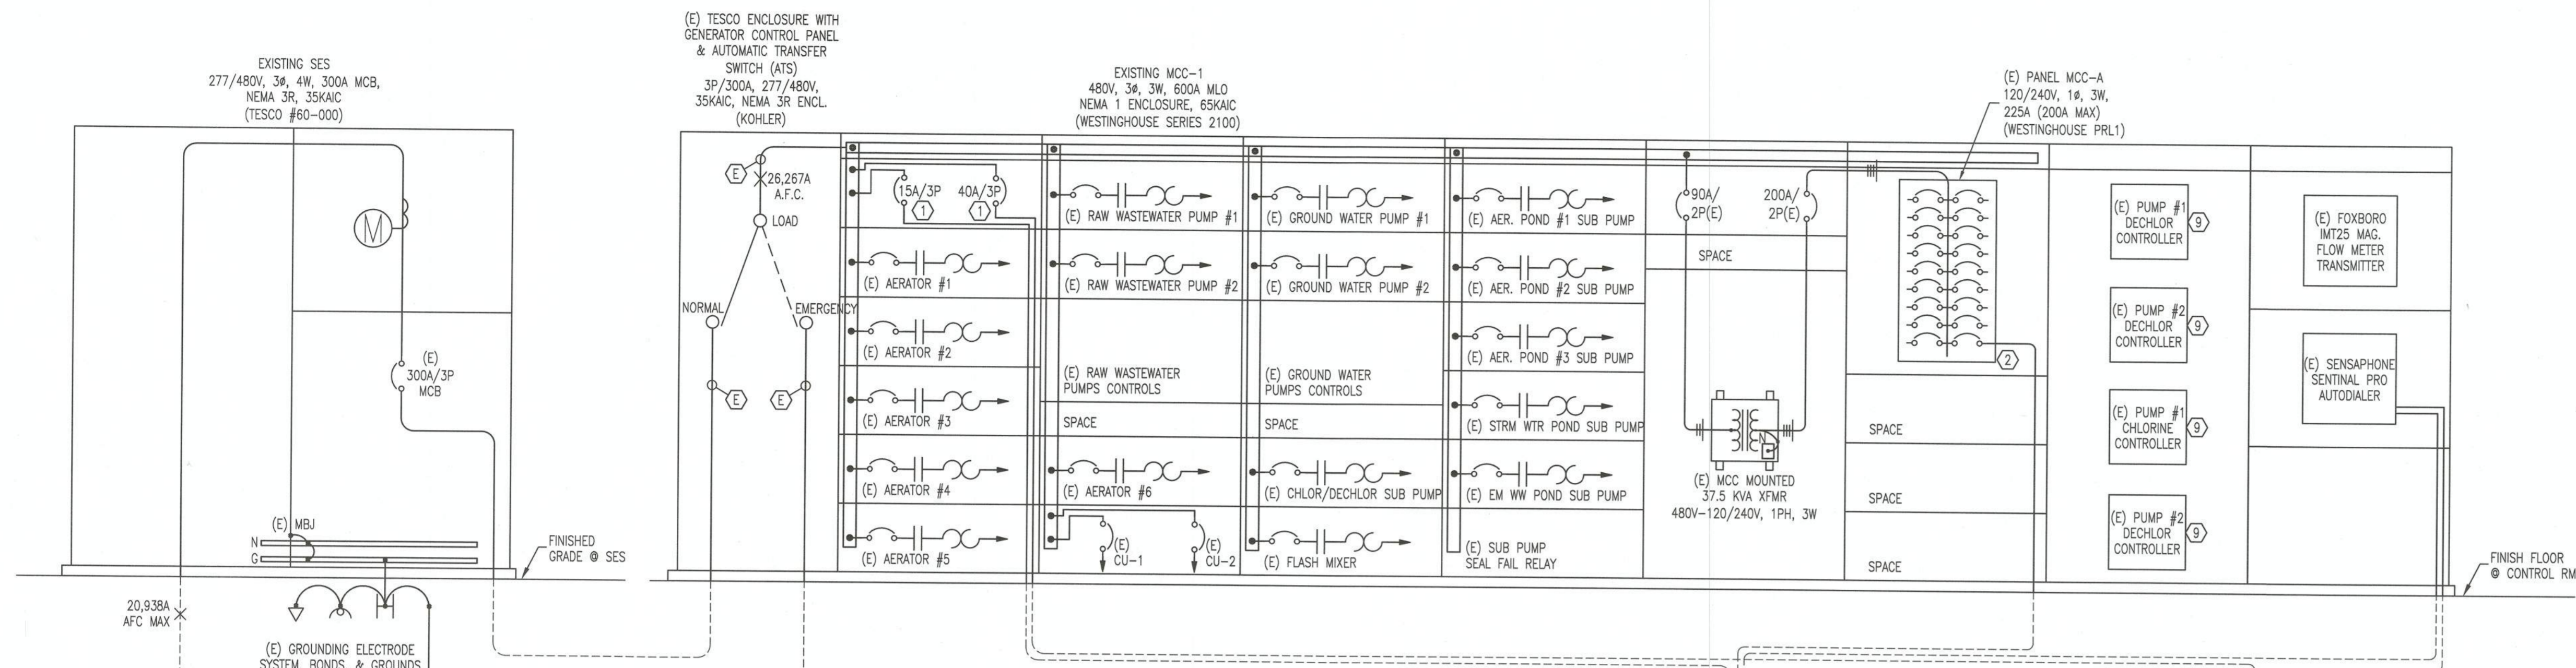 EXISTING SES
277/480V, 3ø, 4W, 300A MCB,
NEMA 3R, 35KAIC
(TESCO #60-000)
M
(E)
300A/3P
MCB
(E) MBJ
N
G
FINISHED
GRADE @ SES
20,938A
AFC MAX
(E) GROUNDING ELECTRODE
SYSTEM, BONDS, & GROUNDS
(E) TESCO ENCLOSURE WITH
GENERATOR CONTROL PANEL
& AUTOMATIC TRANSFER
SWITCH (ATS)
3P/300A, 277/480V,
35KAIC, NEMA 3R ENCL.
(KOHLER)
E
26,267A
A.F.C.
LOAD
NORMAL
EMERGENCY
E
E
EXISTING MCC-1
480V, 3ø, 3W, 600A MLO
NEMA 1 ENCLOSURE, 65KAIC
(WESTINGHOUSE SERIES 2100)
15A/3P
1
40A/3P
1
(E) AERATOR #1
(E) AERATOR #2
(E) AERATOR #3
(E) AERATOR #4
(E) AERATOR #5
(E) RAW WASTEWATER PUMP #1
(E) RAW WASTEWATER PUMP #2
(E) RAW WASTEWATER
PUMPS CONTROLS
SPACE
(E) AERATOR #6
(E)
CU-1
(E)
CU-2
(E) GROUND WATER PUMP #1
(E) GROUND WATER PUMP #2
(E) GROUND WATER
PUMPS CONTROLS
SPACE
(E) CHLOR/DECHLOR SUB PUMP
(E) FLASH MIXER
(E) AER. POND #1 SUB PUMP
(E) AER. POND #2 SUB PUMP
(E) AER. POND #3 SUB PUMP
(E) STRM WTR POND SUB PUMP
(E) EM WW POND SUB PUMP
(E) SUB PUMP
SEAL FAIL RELAY
90A/
2P(E)
200A/
2P(E)
SPACE
N
(E) MCC MOUNTED
37.5 KVA XFMR
480V-120/240V, 1PH, 3W
(E) PANEL MCC-A
120/240V, 1ø, 3W,
225A (200A MAX)
(WESTINGHOUSE PRL1)
2
SPACE
SPACE
SPACE
(E) PUMP #1
DECHLOR
CONTROLLER
9
(E) PUMP #2
DECHLOR
CONTROLLER
9
(E) PUMP #1
CHLORINE
CONTROLLER
9
(E) PUMP #2
DECHLOR
CONTROLLER
9
(E) FOXBORO
IMT25 MAG.
FLOW METER
TRANSMITTER
(E) SENSAPHONE
SENTINAL PRO
AUTODIALER
FINISH FLOOR
@ CONTROL RM